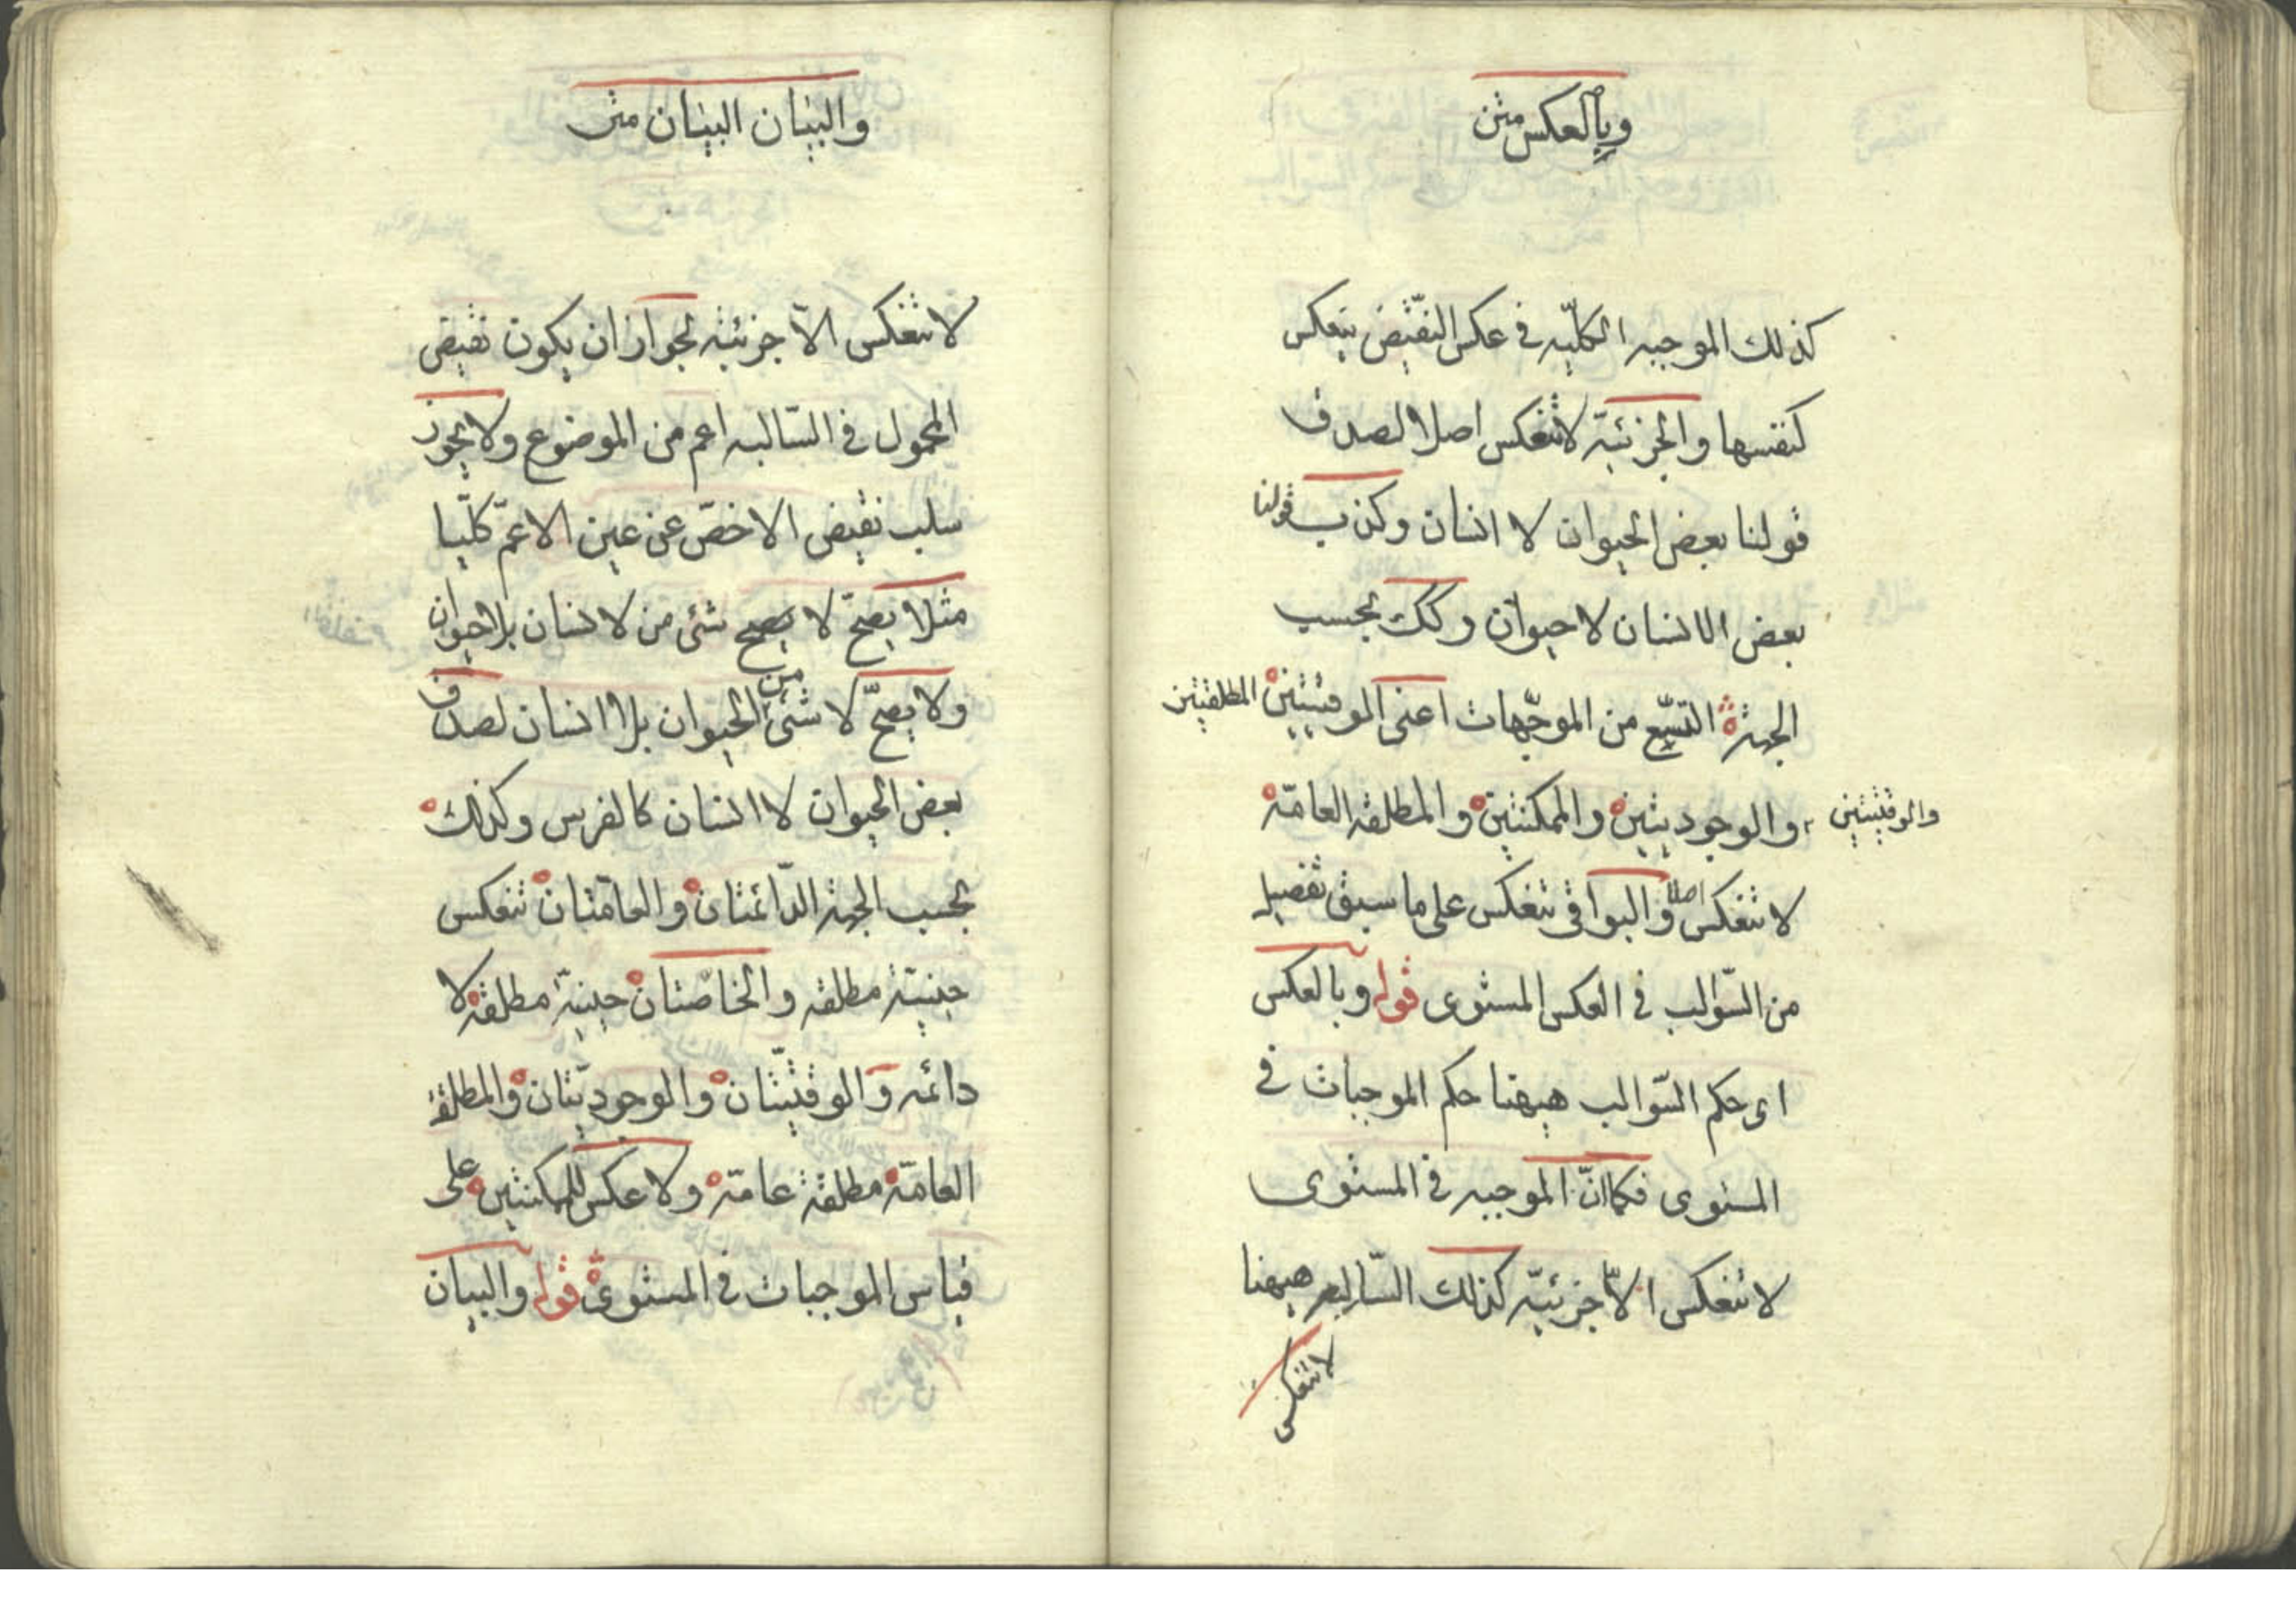 وبالعكس متن
كذلك الموجبه الكليّه فى عكس النقيض ينعكس
كنفسها والجزئية لاتنعكس اصلا لصدق
قولنا بعض الحيوان لا انسان وكذب قولنا
بعض الاانسان لا حيوان وكك بحسب
الجهة التسع من الموجّهات اعنى الموقتيتين المطلقتين
والوقتيتين
والوجوديتين والممكنتين والمطلقه العامّة
لا تنعكس اصلا والبواقى تنعكس على ما سبق تفصيله
من السّوالب فى العكس المستوى قوله وبالعكس
اى حكم السّوالب هيهنا حكم الموجبات فى
المستوى فكما انّ الموجبه فى المستوى
لاتنعكس الّا جزئيّة كذلك السّالبه هيهنا
لاتنعكس
والبيان البيان متن
لاتنعكس الّا جزئيّة لجواز ان يكون نقيض
المحمول فى السّالبه اعم من الموضوع ولايجوز
سلب نقيض الاخصّ عن عين الاعمّ كلّيا
مثلا يصحّ لا يصح شئ من لا انسان بلاحيوان
ولا يصحّ لا شئ من الحيوان بلا انسان لصدق
بعض الحيوان لا انسان كالفرس وكذلك
بحسب الجهة الدّائمتان والعامّتان تنعكس
حينيّة مطلقه والخاصّتان حينيّة مطلقة لا
دائمه والوقتيّتان والوجوديّتان والمطلقة
العامّة مطلقة عامّة ولا عكس للممكنتين على
قياس الموجبات فى المستوى قوله والبيان